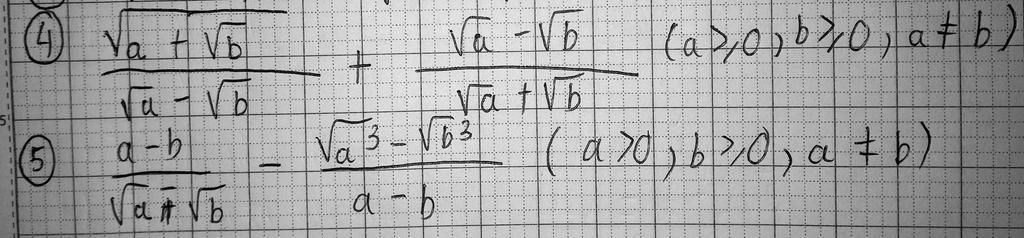 ④ \frac{\sqrt{a + \sqrt{b}}}{\sqrt{a} - \sqrt{b}} + \frac{\sqrt{a} - \sqrt{b}}{\sqrt{a} + \sqrt{b}} (a ≥ 0, b ≥ 0, a ≠ b)
⑤ \frac{a - b}{\sqrt{a} - \sqrt{b}} - \frac{\sqrt{a}^3 - \sqrt{b}^3}{a - b} (a > 0, b ≥ 0, a ≠ b)